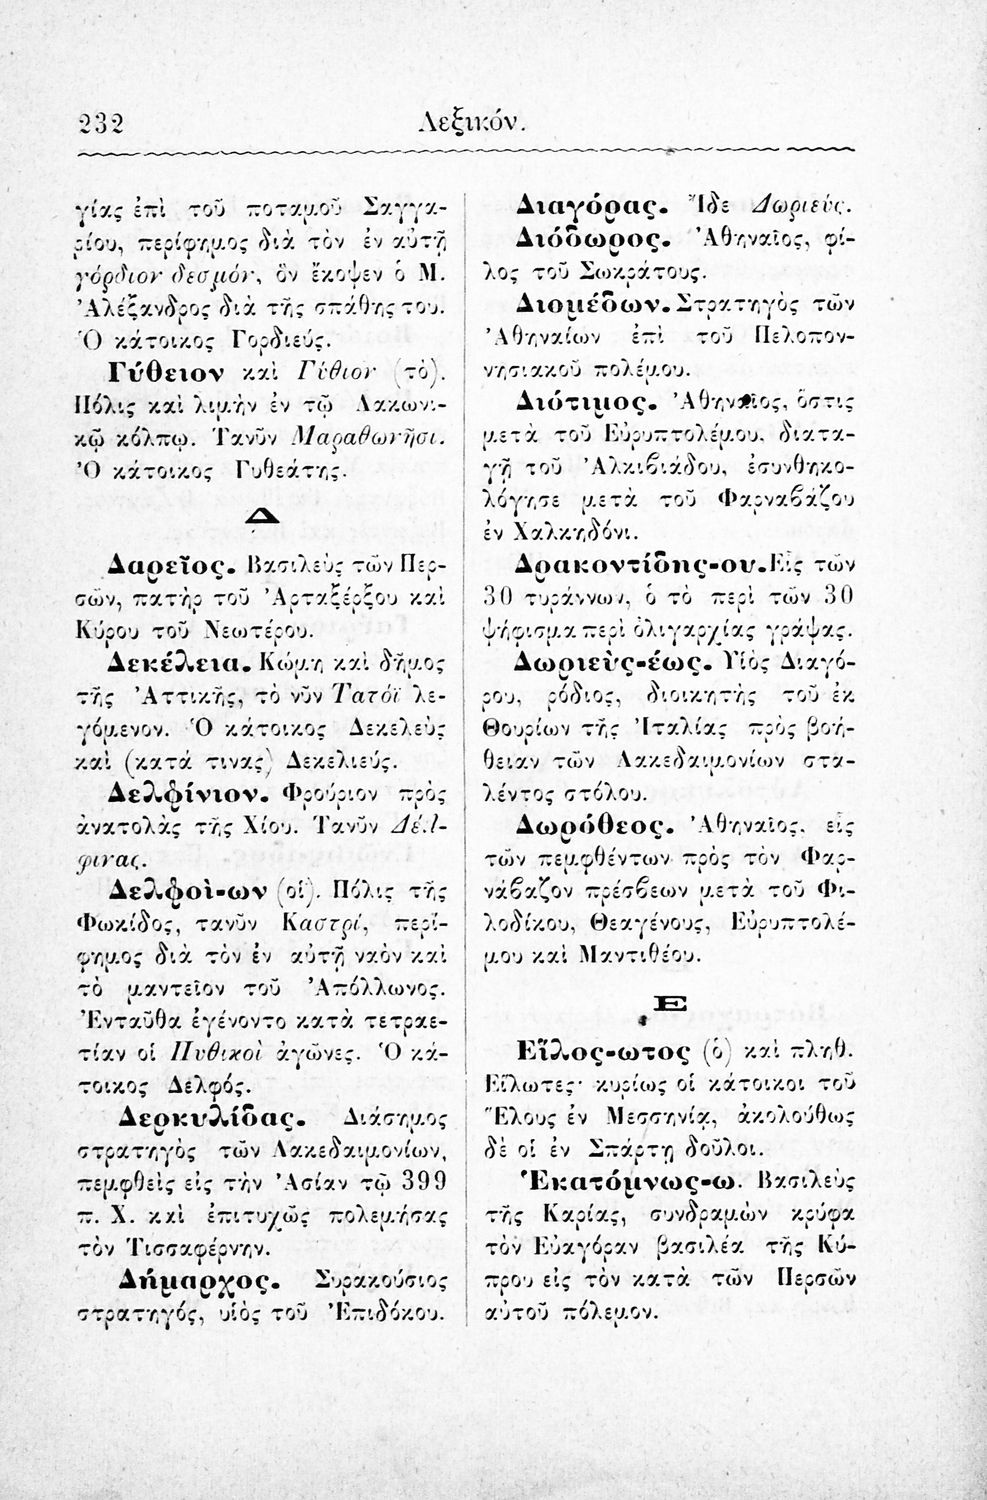 232
Λεξικόν.
γίας ἐπὶ τοῦ ποταμοῦ Σαγγα-
ρίου, περίφημος διὰ τὸν ἐν αὐτῇ
γόρδιον δεσμόν, ὃν ἔκοψεν ὁ Μ.
Ἀλέξανδρος διὰ τῆς σπάθης του.
Ὁ κάτοικος Γορδιεύς.
Γύθειον καὶ Γύθιον (τὸ).
Πόλις καὶ λιμὴν ἐν τῷ Λακωνι-
κῷ κόλπῳ. Τανῦν Μαραθωνῆσι.
Ὁ κάτοικος Γυθεάτης.
Δ
Δαρεῖος. Βασιλεὺς τῶν Περ-
σῶν, πατὴρ τοῦ Ἀρταξέρξου καὶ
Κύρου τοῦ Νεωτέρου.
Δεκέλεια. Κώμη καὶ δῆμος
τῆς Ἀττικῆς, τὸ νῦν Τατόϊ λε-
γόμενον. Ὁ κάτοικος Δεκελεὺς
καὶ (κατά τινας) Δεκελιεύς.
Δελφίνιον. Φρούριον πρὸς
ἀνατολὰς τῆς Χίου. Τανῦν Δέλ-
φινας.
Δελφοὶ-ων (οἱ). Πόλις τῆς
Φωκίδος, τανῦν Καστρί, περί-
φημος διὰ τὸν ἐν αὐτῇ ναὸν καὶ
τὸ μαντεῖον τοῦ Ἀπόλλωνος.
Ἐνταῦθα ἐγένοντο κατὰ τετραε-
τίαν οἱ Πυθικοὶ ἀγῶνες. Ὁ κά-
τοικος Δελφός.
Δερκυλίδας. Διάσημος
στρατηγὸς τῶν Λακεδαιμονίων,
πεμφθεὶς εἰς τὴν Ἀσίαν τῷ 399
π. Χ. καὶ ἐπιτυχῶς πολεμήσας
τὸν Τισσαφέρνην.
Δήμαρχος. Συρακούσιος
στρατηγός, υἱὸς τοῦ Ἐπιδόκου.
Διαγόρας. Ἴδε Δωριεύς.
Διόδωρος. Ἀθηναῖος, φί-
λος τοῦ Σωκράτους.
Διομέδων. Στρατηγὸς τῶν
Ἀθηναίων ἐπὶ τοῦ Πελοπον-
νησιακοῦ πολέμου.
Διότιμος. Ἀθηναῖος, ὅστις
μετὰ τοῦ Εὐρυπτολέμου, διατα-
γῇ τοῦ Ἀλκιβιάδου, ἐσυνθηκο-
λόγησε μετὰ τοῦ Φαρναβάζου
ἐν Χαλκηδόνι.
Δρακοντίδης-ου. Εἷς τῶν
30 τυράννων, ὁ τὸ περὶ τῶν 30
ψήφισμα περὶ ὀλιγαρχίας γράψας.
Δωριεὺς-έως. Υἱὸς Διαγό-
ρου, ρόδιος, διοικητὴς τοῦ ἐκ
Θουρίων τῆς Ἰταλίας πρὸς βοή-
θειαν τῶν Λακεδαιμονίων στα-
λέντος στόλου.
Δωρόθεος. Ἀθηναῖος, εἷς
τῶν πεμφθέντων πρὸς τὸν Φαρ-
νάβαζον πρέσβεων μετὰ τοῦ Φι-
λοδίκου, Θεαγένους, Εὐρυπτολέ-
μου καὶ Μαντιθέου.
Ε
Εἵλος-ωτος (ὁ) καὶ πληθ.
Εἵλωτες· κυρίως οἱ κάτοικοι τοῦ
Ἕλους ἐν Μεσσηνίᾳ, ἀκολούθως
δὲ οἱ ἐν Σπάρτῃ δοῦλοι.
Ἑκατόμνως-ω. Βασιλεὺς
τῆς Καρίας, συνδραμὼν κρύφα
τὸν Εὐαγόραν βασιλέα τῆς Κύ-
πρου εἰς τὸν κατὰ τῶν Περσῶν
αὐτοῦ πόλεμον.